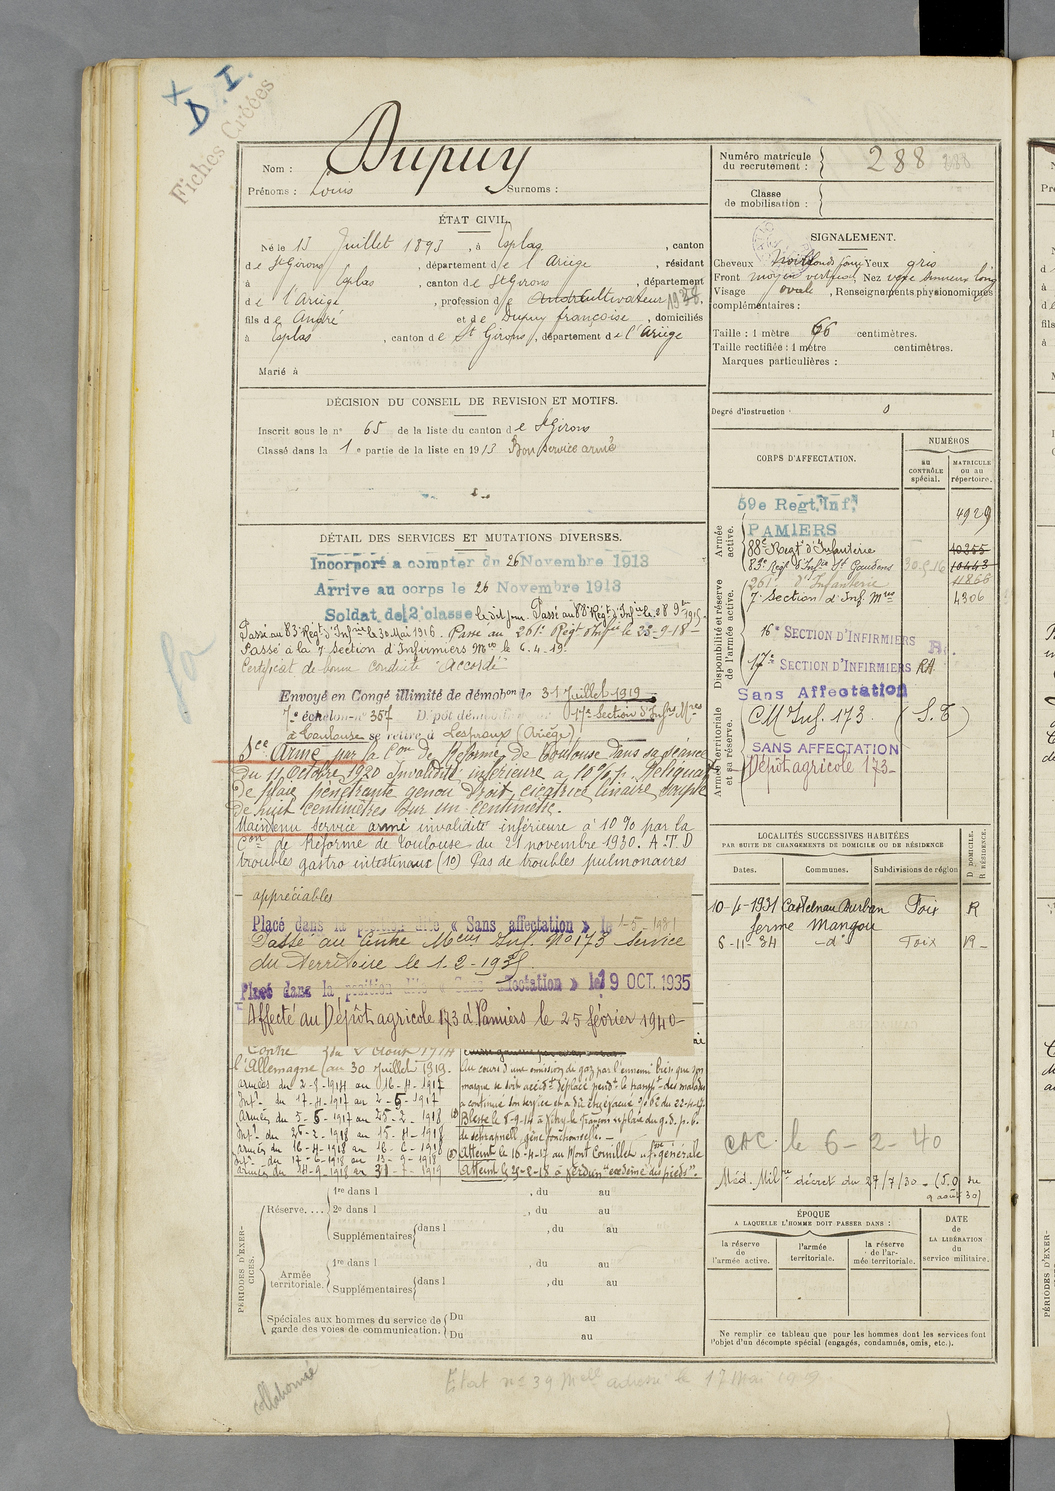 X D. I.
Fiches Créées
Nom : Dupuy
Prénoms : Louis Surnoms :
Numéro matricule du recrutement : 288 288
Classe de mobilisation :
ÉTAT CIVIL.
Né le 15 Juillet 1893, à Esplas, canton
de St Girons, département de l'Ariège, résidant
à Esplas, canton de St Girons, département
de l'Ariège, profession de Cultivateur
fils de André et de Dupuy françoise, domiciliés
à Esplas, canton de St Girons, département de l'Ariège
Marié à
SIGNALEMENT.
Cheveux Yeux gris
Front moyen vertical, Nez long
Visage ovale, Renseignements physionomiques
complémentaires :
Taille : 1 mètre 66 centimètres.
Taille rectifiée : 1 mètre centimètres.
Marques particulières :
Degré d'instruction 0
DÉCISION DU CONSEIL DE REVISION ET MOTIFS.
Inscrit sous le n° 65 de la liste du canton de St Girons
Classé dans la 1e partie de la liste en 1913 Bon service armé
DÉTAIL DES SERVICES ET MUTATIONS DIVERSES.
Incorporé a compter du 26 Novembre 1913
Arrive au corps le 26 Novembre 1913
Soldat de 2e classe le dit jour. Passé au 88e Régt d'Infrie le 28 9bre 1915.
Passé au 83e Régt d'Infrie le 30 Mai 1916. Passé au 261e Régt d'Infie le 23-9-18-
Passé à la 7 Section d'Infirmiers Mres le 6.4.19.
Certificat de bonne conduite "Accordé"
Envoyé en Congé illimité de démobon le 31 Juillet 1919
7e échelon n° 357 Dépôt démob 17e Section d'Infrs Mres
à Toulouse se retire à Lespraux (Ariège)
Sce Armé par la Con de Réforme de Toulouse dans sa séance
du 11 Octobre 1920 Invalidité inférieure a 10% p. Reliquat
de plaie pénétrante genou droit, cicatrice linaire, souple
de huit centimètres sur un centimètre.
Maintenu Service armé invalidité inférieure à 10% par la
Con de Réforme de Toulouse du 21 novembre 1930. A.T.D
troubles gastro intestinaux (10) Pas de troubles pulmonaires
appréciables
Placé dans la position dite « Sans affectation » le 1-5-1931
Passé au Centre Meur Inf. No 173 Service
du Territoire le 1.2-1935
Placé dans la position dite « Sans affectation » le 19 OCT. 1935
Affecté au Dépôt agricole 173 à Pamiers le 25 février 1940-
Contre du 2 Août 1914
l'Allemagne au 30 Juillet 1919.
Armées du 2-8-1914 au 16-4-1917
Intr du 17-4-1917 au 2-5-1917
Armées du 3-5-1917 au 25-2-1918
Intr du 26-2-1918 au 15-4-1918
Armées du 16-4-1918 au 16-6-1918
Intr du 17-6-1918 au 13-9-1918
Armées du 14-9-1918 au 31-7-1919
Au cours d'une émission de gaz par l'ennemi bien que son
masque se soit accidt déplacé pendt le transpt des malades
a continué son service
Blessé le 8-9-14 à Vitry le François
de schrapnell, gêne fonctionnelle.-
Atteint le 16-4-17 au Mont Cornillet
Atteint le 29-8-18 à Verdun "oedème des pieds".-
CORPS D'AFFECTATION.
NUMÉROS
au CONTRÔLE spécial.
MATRICULE ou au répertoire.
Armée active.
59e Regt Inf.
PAMIERS 4929
88e Regt d'Infanterie 10355
83e Régt d'Infie St Gaudens 30.5.16 10443
Disponibilité et réserve de l'armée active.
261e d'Infanterie 11866
7e Section d'Inf. Mres 4306
16e SECTION D'INFIRMIERS
17e SECTION D'INFIRMIERS RA.
Sans Affectation
Armée territoriale et sa réserve.
CM Inf. 173. (S.T)
SANS AFFECTATION
Dépôt agricole 173-
LOCALITÉS SUCCESSIVES HABITÉES
PAR SUITE DE CHANGEMENTS DE DOMICILE OU DE RÉSIDENCE
Dates. Communes. Subdivisions de région D DOMICILE. R RÉSIDENCE.
10-4-1931 Castelnau Durban Foix R
ferme Mangou
6-11-34 -do- Foix R-
CAC. le 6-2-40
Méd. Milre décret du 27/7/30 - (J.O du
9 août 30)
ÉPOQUE
A LAQUELLE L'HOMME DOIT PASSER DANS :
la réserve de l'armée active. l'armée territoriale. la réserve de l'armée territoriale.
DATE de LA LIBÉRATION du service militaire.
Ne remplir ce tableau que pour les hommes dont les services font
l'objet d'un décompte spécial (engagés, condamnés, omis, etc.).
PÉRIODES D'EXERCICES.
Réserve....
1re dans l , du au
2e dans l , du au
Supplémentaires dans l , du au
Armée territoriale.
1re dans l , du au
Supplémentaires dans l , du au
Spéciales aux hommes du service de garde des voies de communication.
Du au
Du au
collationné
Etat no 39 adressé le 17 Mai